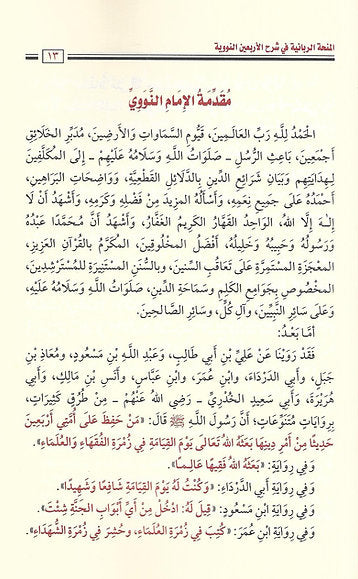 المنحة الربانية في شرح الأربعين النووية
١٣
مُقَدِّمَةُ الإِمَامِ النَّوَوِيِّ
الحَمْدُ لِلَّهِ رَبِّ العَالَمِينَ، قَيُّومِ السَّمَاوَاتِ وَالأَرَضِينَ، مُدَبِّرِ الخَلَائِقِ
أَجْمَعِينَ، بَاعِثِ الرُّسُلِ - صَلَوَاتُ اللَّهِ وَسَلَامُهُ عَلَيْهِمْ - إِلَى المُكَلَّفِينَ
لِهِدَايَتِهِم وَبَيَانِ شَرَائِعِ الدِّينِ بِالدَّلَائِلِ القَطْعِيَّةِ، وَوَاضِحَاتِ البَرَاهِينِ،
أَحْمَدُهُ عَلَى جَمِيعِ نِعَمِهِ، وَأَسْأَلُهُ المَزِيدَ مِنْ فَضْلِهِ وَكَرَمِهِ، وَأَشْهَدُ أَنْ لَا
إِلَهَ إِلَّا اللهُ، الوَاحِدُ القَهَّارُ الكَرِيمُ الغَفَّارُ، وَأَشْهَدُ أَنَّ مُحَمَّدًا عَبْدُهُ
وَرَسُولُهُ وَحَبِيبُهُ وَخَلِيلُهُ، أَفْضَلُ المَخْلُوقِينَ، المُكَرَّمُ بِالقُرْآنِ العَزِيزِ،
المُعْجِزَةِ المُسْتَمِرَّةِ عَلَى تَعَاقُبِ السِّنِينَ، وَبِالسُّنَنِ المُسْتَنِيرَةِ لِلْمُسْتَرْشِدِينَ،
المَخْصُوصُ بِجَوَامِعِ الكَلِمِ وَسَمَاحَةِ الدِّينِ، صَلَوَاتُ اللَّهِ وَسَلَامُهُ عَلَيْهِ،
وَعَلَى سَائِرِ النَّبِيِّينَ، وَآلِ كُلٍّ، وَسَائِرِ الصَّالِحِينَ.
أَمَّا بَعْدُ:
فَقَدْ رَوَيْنَا عَنْ عَلِيِّ بْنِ أَبِي طَالِبٍ، وَعَبْدِ اللَّهِ بْنِ مَسْعُودٍ، وَمُعَاذِ بْنِ
جَبَلٍ، وَأَبِي الدَّرْدَاءِ، وَابْنِ عُمَرَ، وَابْنِ عَبَّاسٍ، وَأَنَسِ بْنِ مَالِكٍ، وَأَبِي
هُرَيْرَةَ، وَأَبِي سَعِيدٍ الخُدْرِيِّ - رَضِيَ اللهُ عَنْهُمْ - مِنْ طُرُقٍ كَثِيرَاتٍ،
بِرِوَايَاتٍ مُتَنَوِّعَاتٍ؛ أَنَّ رَسُولَ اللَّهِ ﷺ قَالَ: «مَنْ حَفِظَ عَلَى أُمَّتِي أَرْبَعِينَ
حَدِيثًا مِنْ أَمْرِ دِينِهَا بَعَثَهُ اللهُ تَعَالَى يَوْمَ القِيَامَةِ فِي زُمْرَةِ الفُقَهَاءِ وَالعُلَمَاءِ».
وَفِي رِوَايَةٍ: «بَعَثَهُ اللهُ فَقِيهًا عَالِمًا».
وَفِي رِوَايَةِ أَبِي الدَّرْدَاءِ: «وَكُنْتُ لَهُ يَوْمَ القِيَامَةِ شَافِعًا وَشَهِيدًا».
وَفِي رِوَايَةِ ابْنِ مَسْعُودٍ: «قِيلَ لَهُ: ادْخُلْ مِنْ أَيِّ أَبْوَابِ الجَنَّةِ شِئْتَ».
وَفِي رِوَايَةِ ابْنِ عُمَرَ: «كُتِبَ فِي زُمْرَةِ العُلَمَاءِ، وَحُشِرَ فِي زُمْرَةِ الشُّهَدَاءِ».